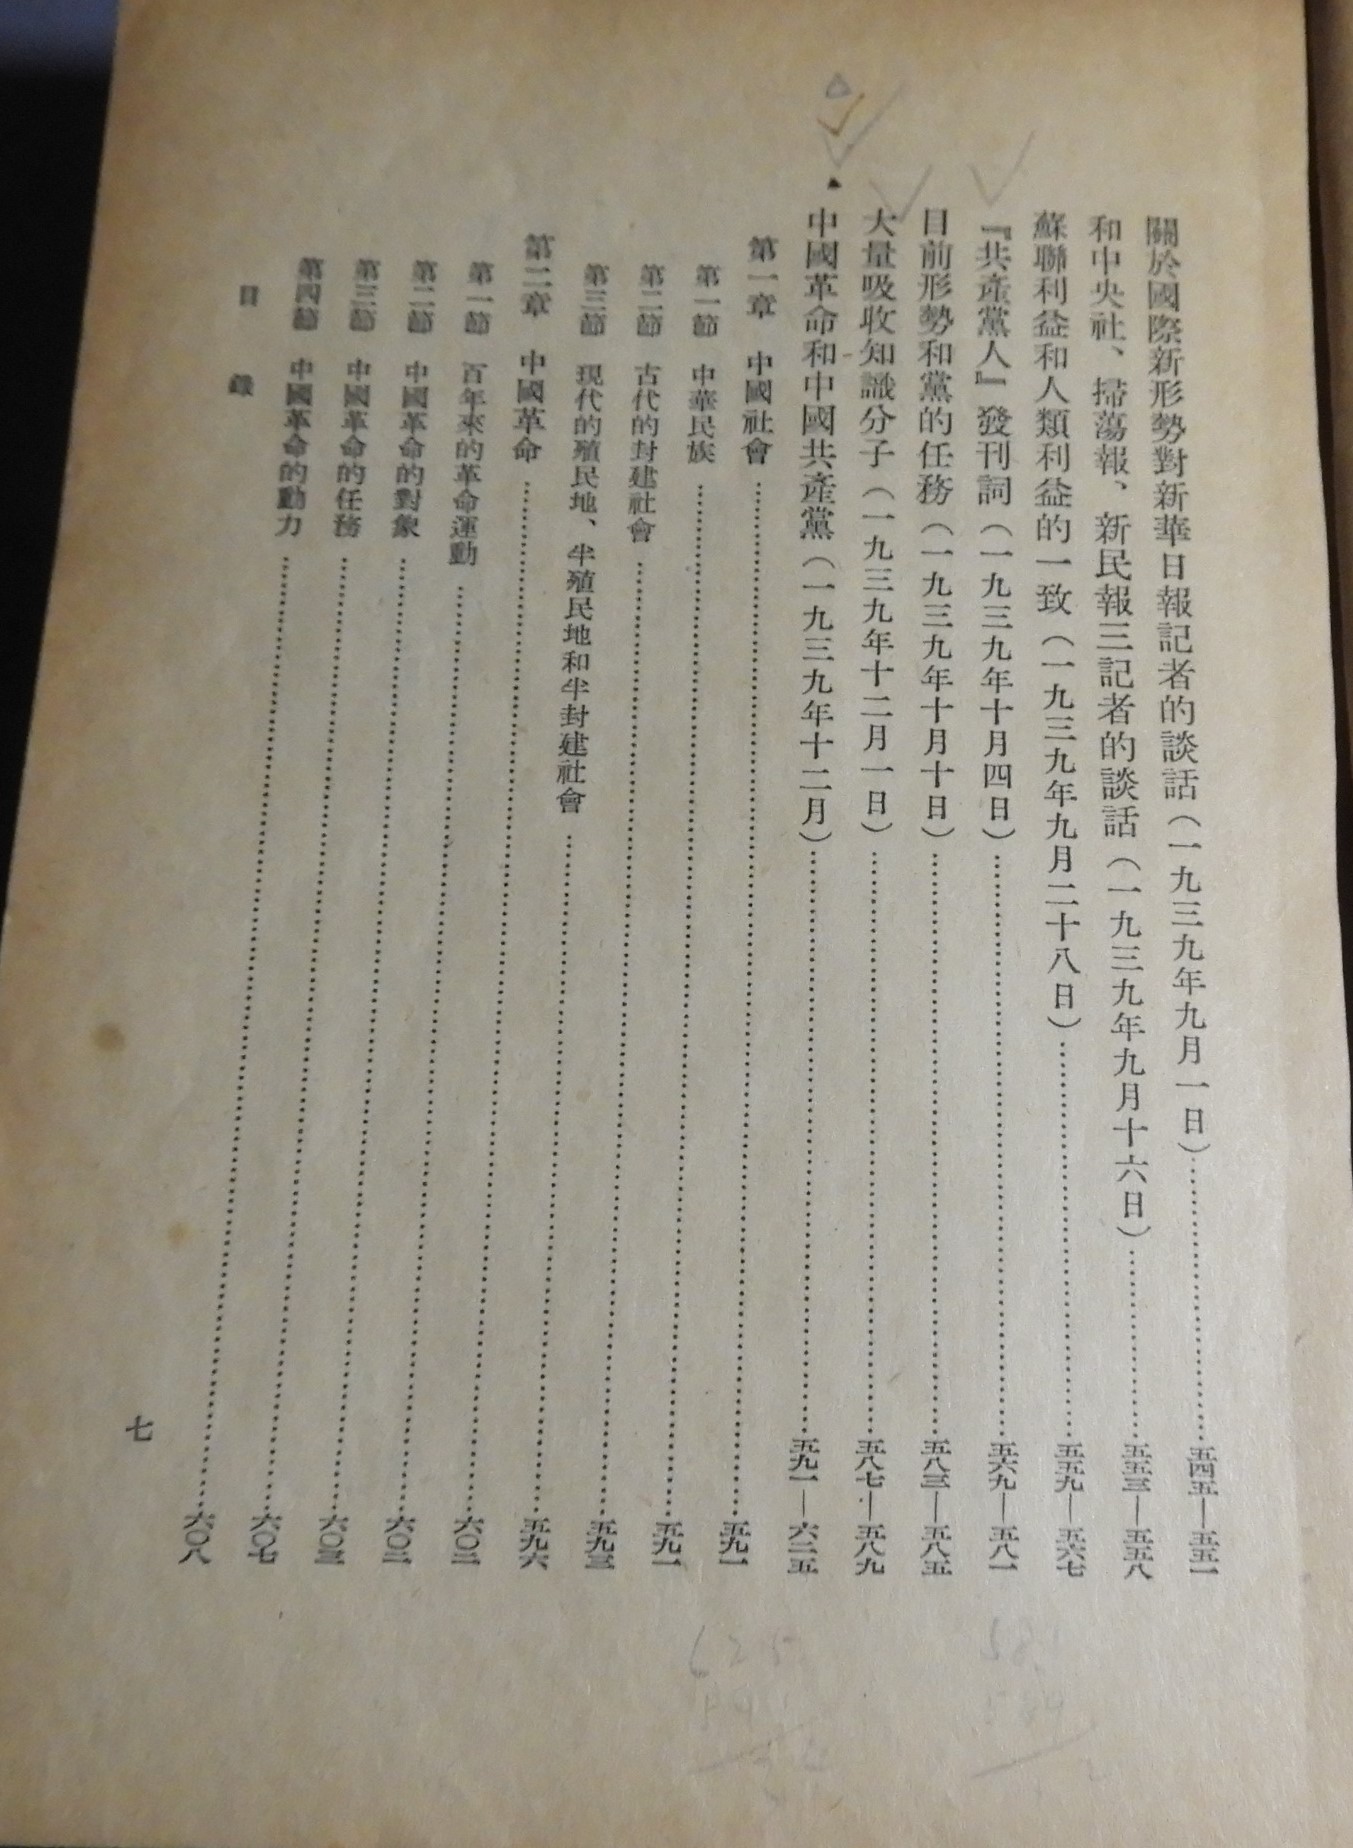 關於國際新形勢對新華日報記者的談話（一九三九年九月一日）……五四五—五五一
和中央社、掃蕩報、新民報三記者的談話（一九三九年九月十六日）……五五三—五五八
蘇聯利益和人類利益的一致（一九三九年九月二十八日）……五五九—五六七
『共產黨人』發刊詞（一九三九年十月四日）……五六九—五八一
目前形勢和黨的任務（一九三九年十月十日）……五八三—五八五
大量吸收知識分子（一九三九年十二月一日）……五八七—五八九
中國革命和中國共產黨（一九三九年十二月）……五九一—六二五
第一章 中國社會……五九一
第一節 中華民族……五九一
第二節 古代的封建社會……五九三
第三節 現代的殖民地、半殖民地和半封建社會……五九六
第二章 中國革命……六〇二
第一節 百年來的革命運動……六〇二
第二節 中國革命的對象……六〇三
第三節 中國革命的任務……六〇七
第四節 中國革命的動力……六〇八
目 錄
七
625
581